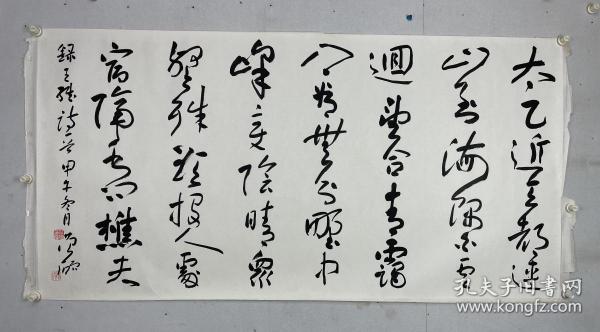 太乙近天都連
山到海隅白雲
迴望合青靄
入看無分野中
峰變陰晴眾
壑殊欲投人處
宿隔水問樵夫
錄王維詩 甲午冬月
孔夫子旧书网
www.kongfz.com